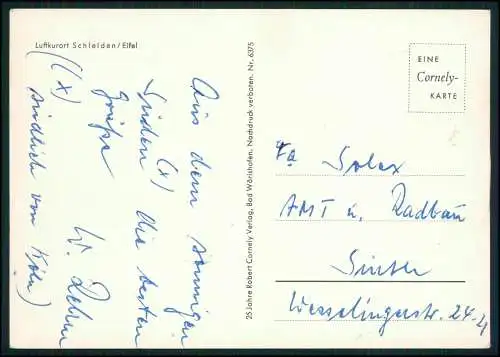 Luftkurort Schleiden/Eifel
Aus dem sonnigen
Süden (x) die besten
Grüße
W. Rehm
((x)
südlich von Köln)
25 Jahre Robert Cornely Verlag, Bad Wörishofen. Nachdruck verboten. Nr. 6375
EINE
Cornely-
KARTE
Fa Solex
AMT u. Radbau
Wesselingerstr. 24-